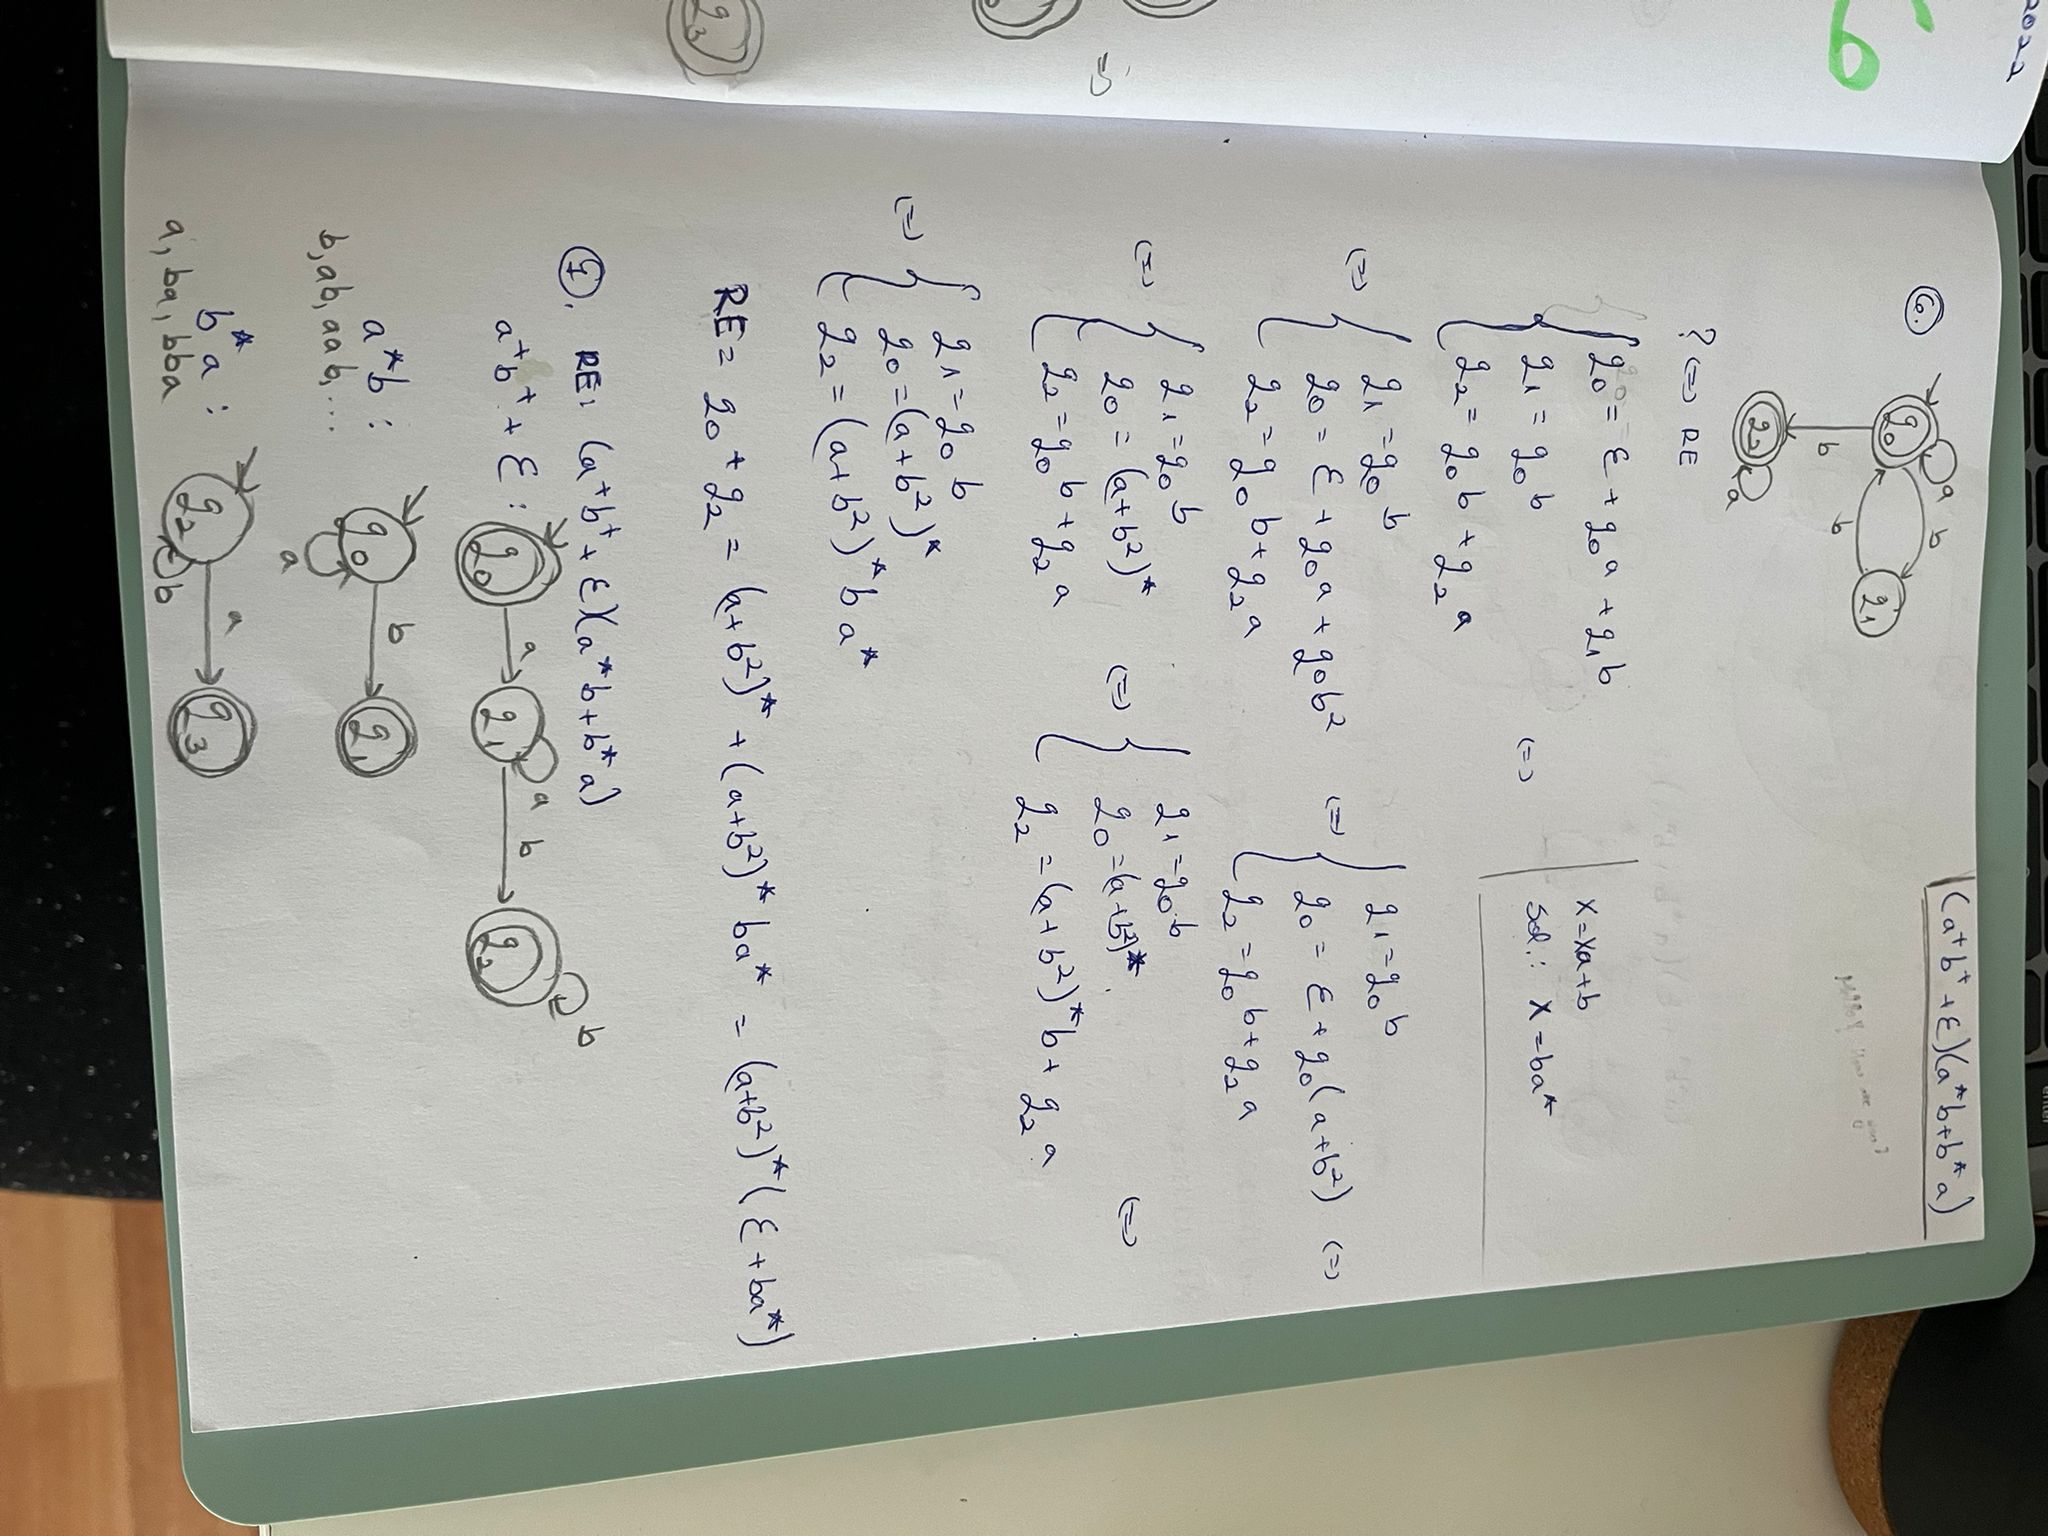 2022
6
enter
(a⁺b⁺+ε)(a*b+b*a)
6.
q₀ a b q₁
b
b
q₂ a
? <=> RE
q₀ = ε + q₀a + q₁b
q₁ = q₀b <=>
q₂ = q₀b + q₂a
X=Xa+b
Sol.: X=ba*
<=> q₁ = q₀b
q₀ = ε + q₀a + q₀b²
q₂ = q₀b + q₂a
<=> q₁ = q₀b
q₀ = ε + q₀(a+b²) <=>
q₂ = q₀b + q₂a
<=> q₁ = q₀b
q₀ = (a+b²)*
q₂ = q₀b + q₂a
<=> q₁ = q₀b
q₀ = (a+b²)* <=>
q₂ = (a+b²)*b + q₂a
<=> q₁ = q₀b
q₀ = (a+b²)*
q₂ = (a+b²)*ba*
RE = q₀ + q₂ = (a+b²)* + (a+b²)*ba* = (a+b²)*(ε+ba*)
7. RE: (a⁺b⁺+ε)(a*b+b*a)
a⁺b⁺ + ε : q₀ a q₁ a b q₂ b
a*b : q₀ b q₁
b, ab, aab, ...
a
b*a : q₂ a q₃
a, ba, bba
b
q₃
=>